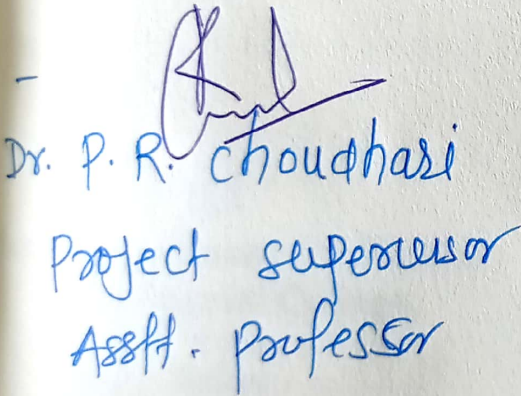 Dr. P. R. Choudhari
Project supervisor
Asstt. Professor